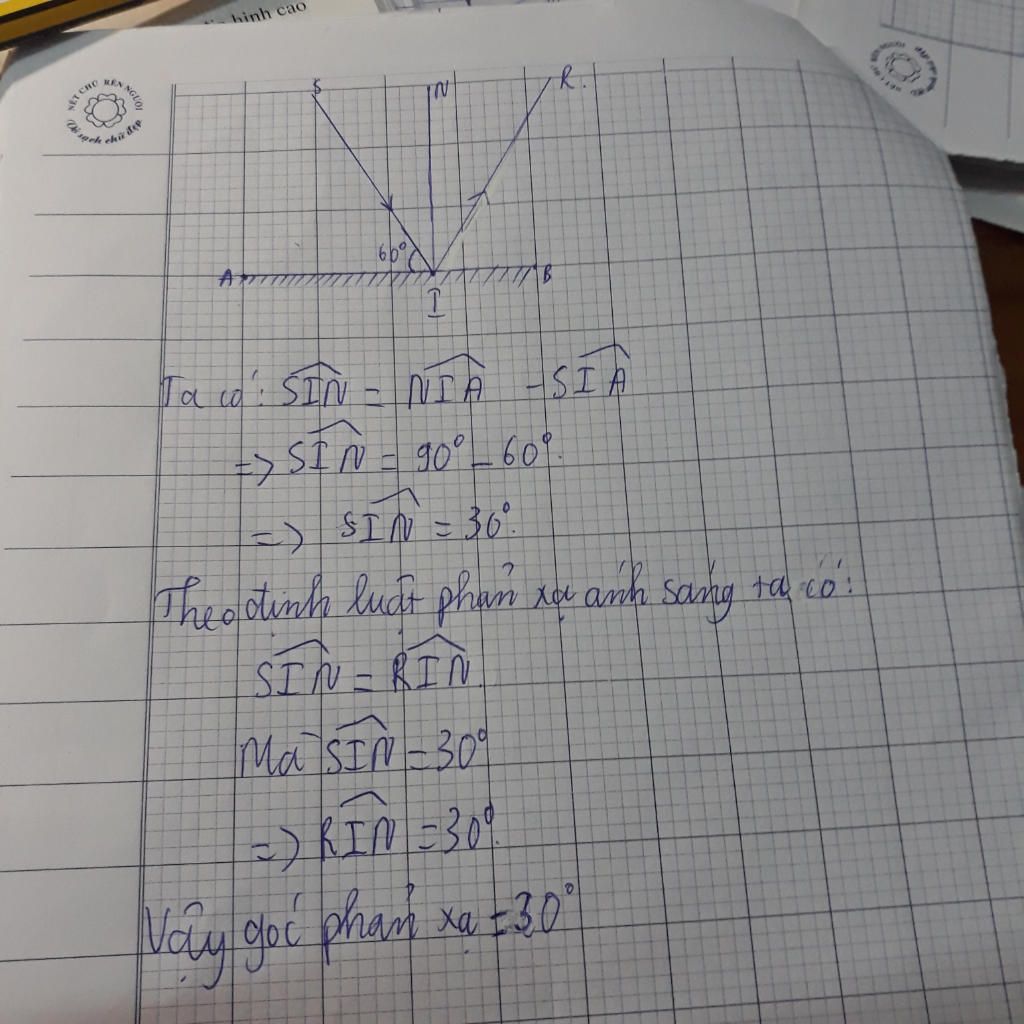 hình cao
NÉT CHỮ RÈN NGƯỜI
Vở sạch chữ đẹp
S N R.
60°
A B
I
Ta có: SIN = NIA - SIA
=> SIN = 90° - 60°.
=> SIN = 30°.
Theo định luật phản xạ ánh sáng ta có:
SIN = RIN.
Mà SIN = 30°
=> RIN = 30°.
Vậy góc phản xạ = 30°